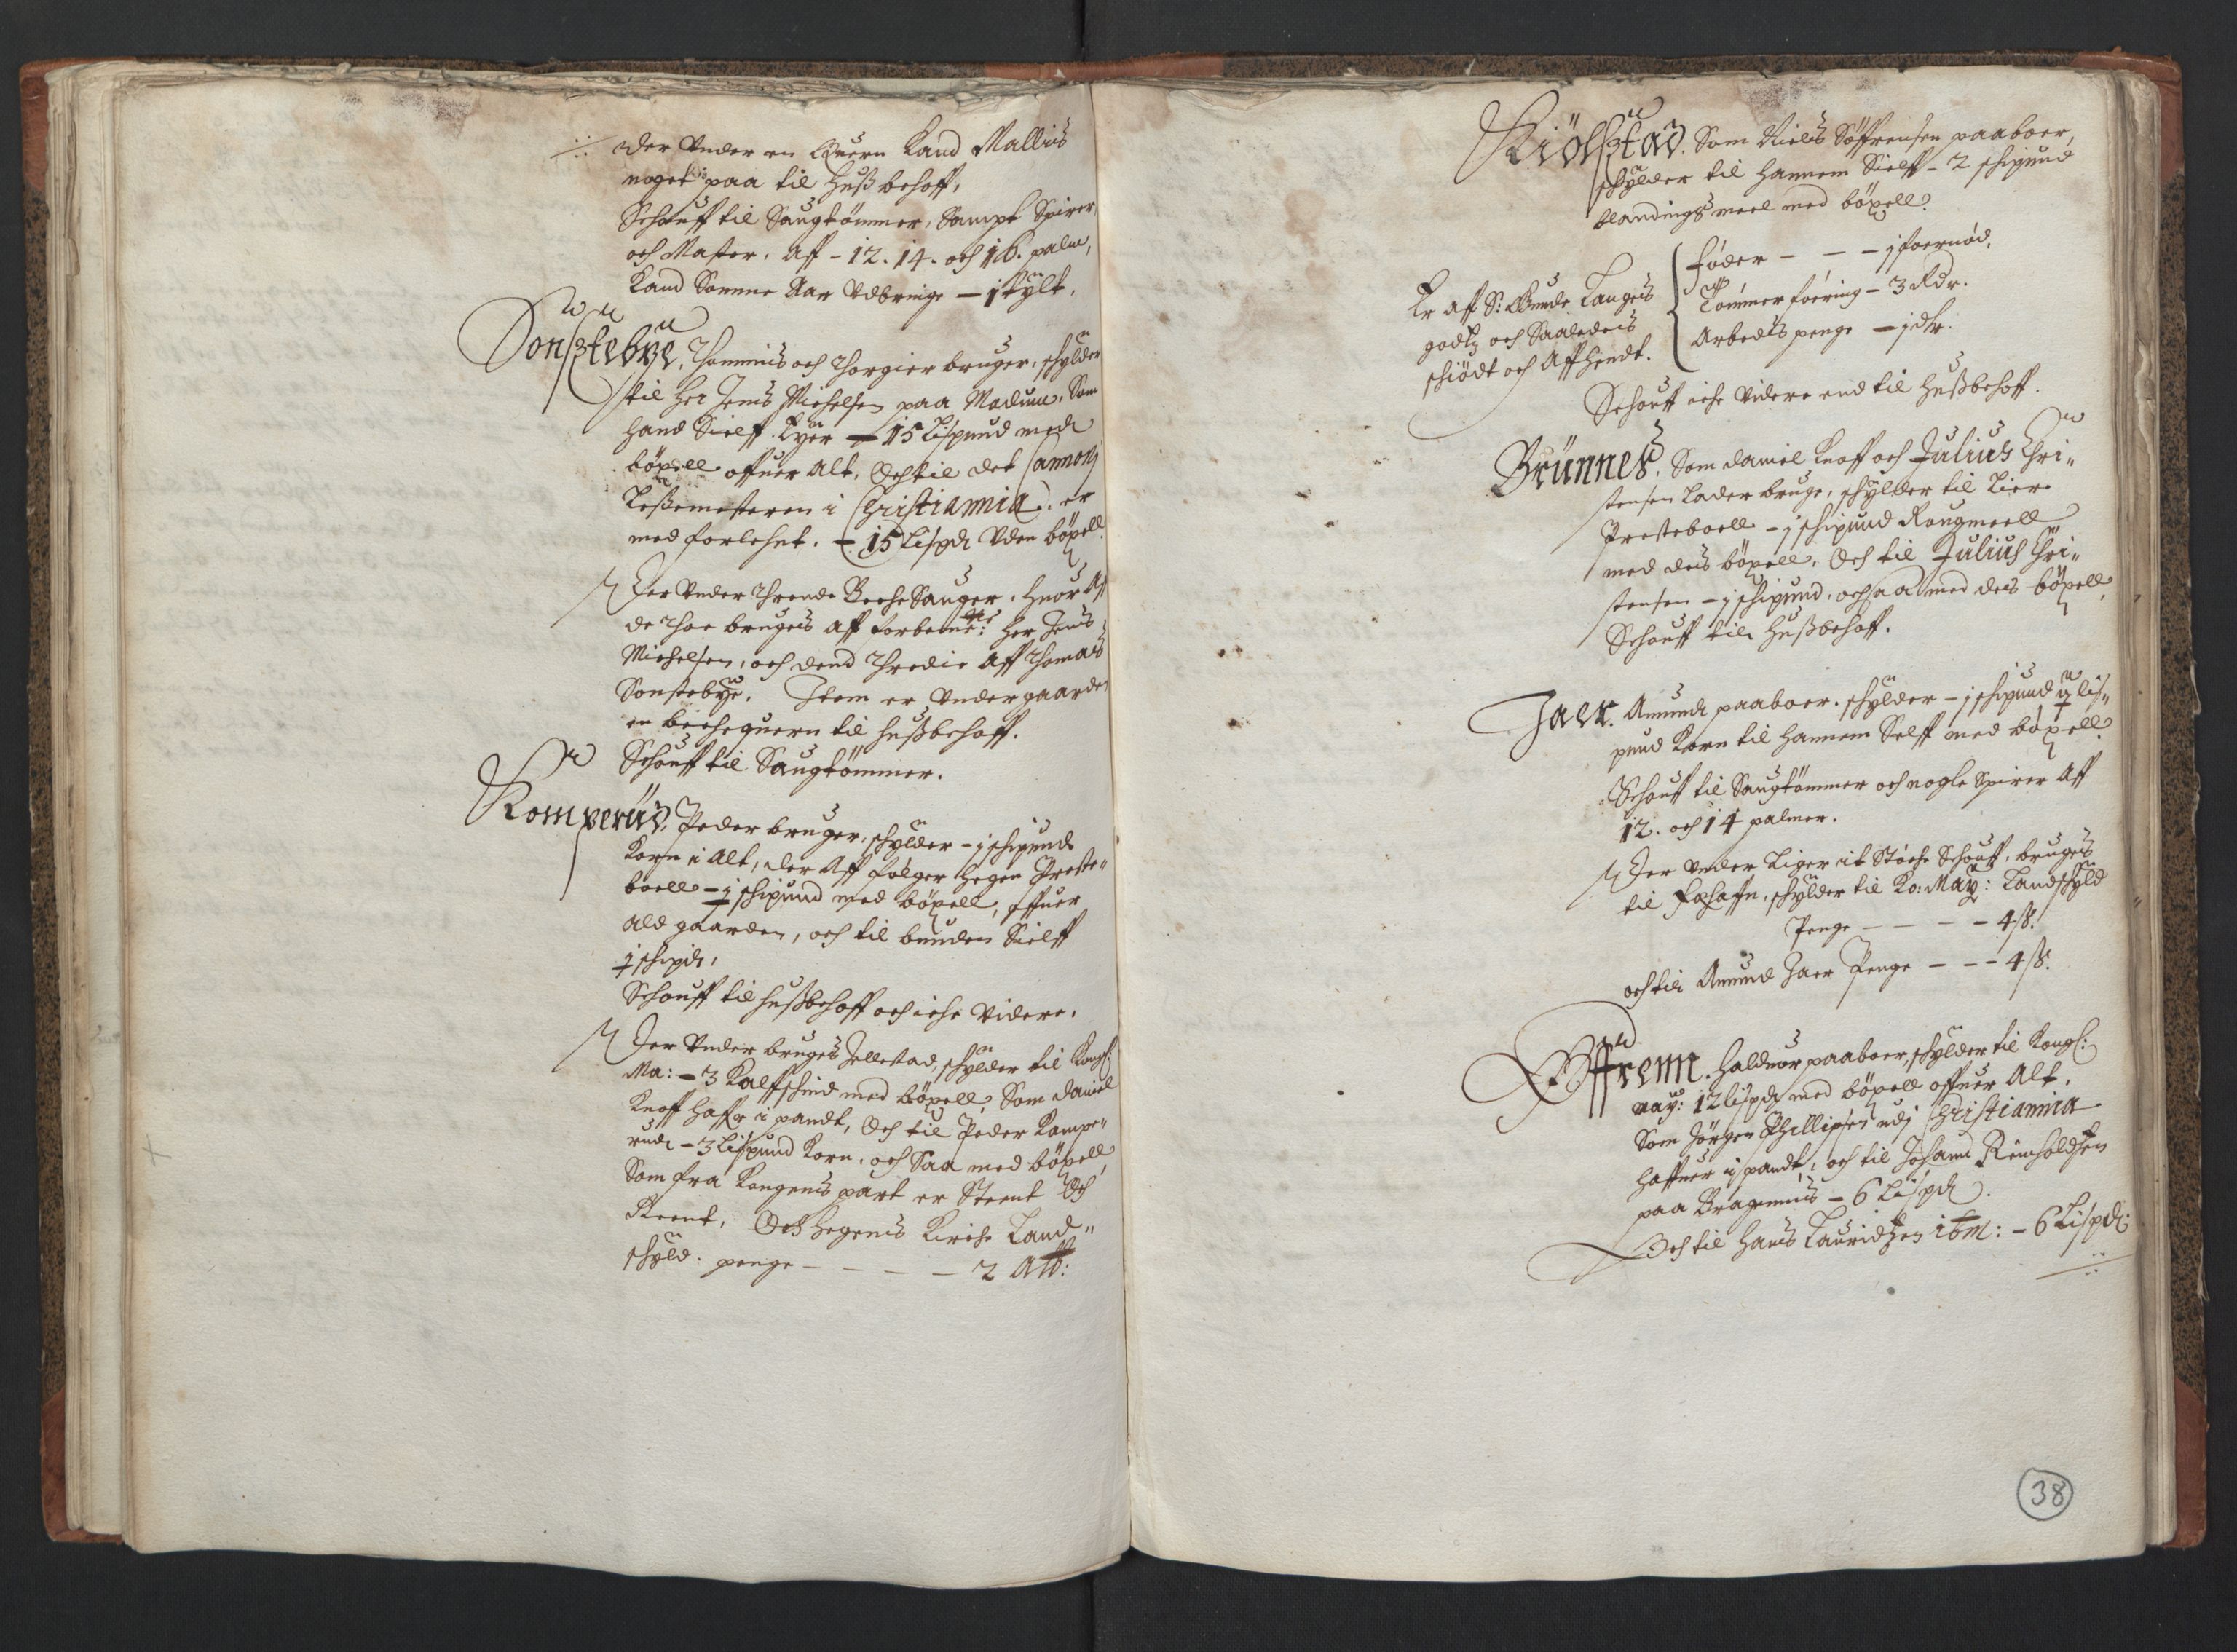 der Under en Quern Kand Mallis
noget paa til Hußbehoff,
Schouff til Saugtømmer, Sampt Spirer,
och Master. Aff - 12. 14. och 16. palm,
Kand Somme Aar Udbringe - j tylt.
Sonstebye, Thommis och Thorgier bruger, schylder
til Her Jens Michelsen paa Modum, Som
hand Sielff Eyer - 15 Lispund med
böxell offuer Alt, Och til det Cannonj
Leßemesteren i Christiannia er
med forlehnt. - 15 Lispd Uden böxell.
Der Under Thrende Beche Sauger, Huor Aff
de thoe brugis aff forbemte: Her Jens
Michelsen, och dend Thredie Aff Thomas
Sonstebye. Item er Under gaarden
en bechequern til Hußbehoff.
Schouff til Saugtömmer.
Komperud, Peder bruger, schylder - j schipund
Korn i Alt, der Aff følger Hegen Preste"
boell - ½ schipund med böxell, offuer
ald gaarden, och til bunden Sielff
½ schipd,
Schouff til Hußbehoff och iche Videre.
Der Under bruges Jellestad, schylder til Kongl:
Ma: - 3 Kalffschind med böxell, Som Daniel
Knoff Haffr i pandt, Och til Peder Kompe"
rud - 3 Lispund Korn, och Saa med böxell
Som fra Kongens part er Steent Och
Reent, Och Hegenis Kirche Land"
schyld. penge - - - - 2 Alb:
Kiölstad. Som Niels Söffrensen paaboer,
schylder til Hannem Sielff - 2 schipund
blandings meel med böxell.
Er aff S: Gunde Langes
godtz och Saaledis
schiödt och Affhendt.
föder - - - j foernöd,
Tömmer foering - 3 Rdr.
Arbeds penge - j dlr.
Schouff iche Videre end til Hußbehoff.
Brünnes, Som Daniel Knoff och Julius Chri"
stensen Lader bruge, schylder til Lier
Presteboell - j schipund Rougmeell
med dis böxell, Och til Julius Chri"
stensen - j schipund, ochsaa med dis böxell,
Schouff til Hußbehoff.
Jaer. Amund paaboer. schylder - j schipund ½ lis"
pund Korn til Hannem Selff med böxell
Schouff til Saugtömmer och nogle Spirer Aff
12. och 14 palmer.
Der Under Liger it Støche Schouff, bruges
til Foehaffn, schylder til Ko: May: Landschyld
Penge - - - - 4 ß.
och til Amund Jaer Penge - - - 4 ß.
Effrem. Haldvor paaboer, schylder til Kongl:
May: 12 lispd med böxell offuer Alt,
Som Jörgen Phillipsen udj Christiannia
haffuer i pandt, och til Johann Reinholdsen
paa Bragernes - 6 Lispd.
Och til Hans Lauridtzen ibm: - 6 Lispd:
38